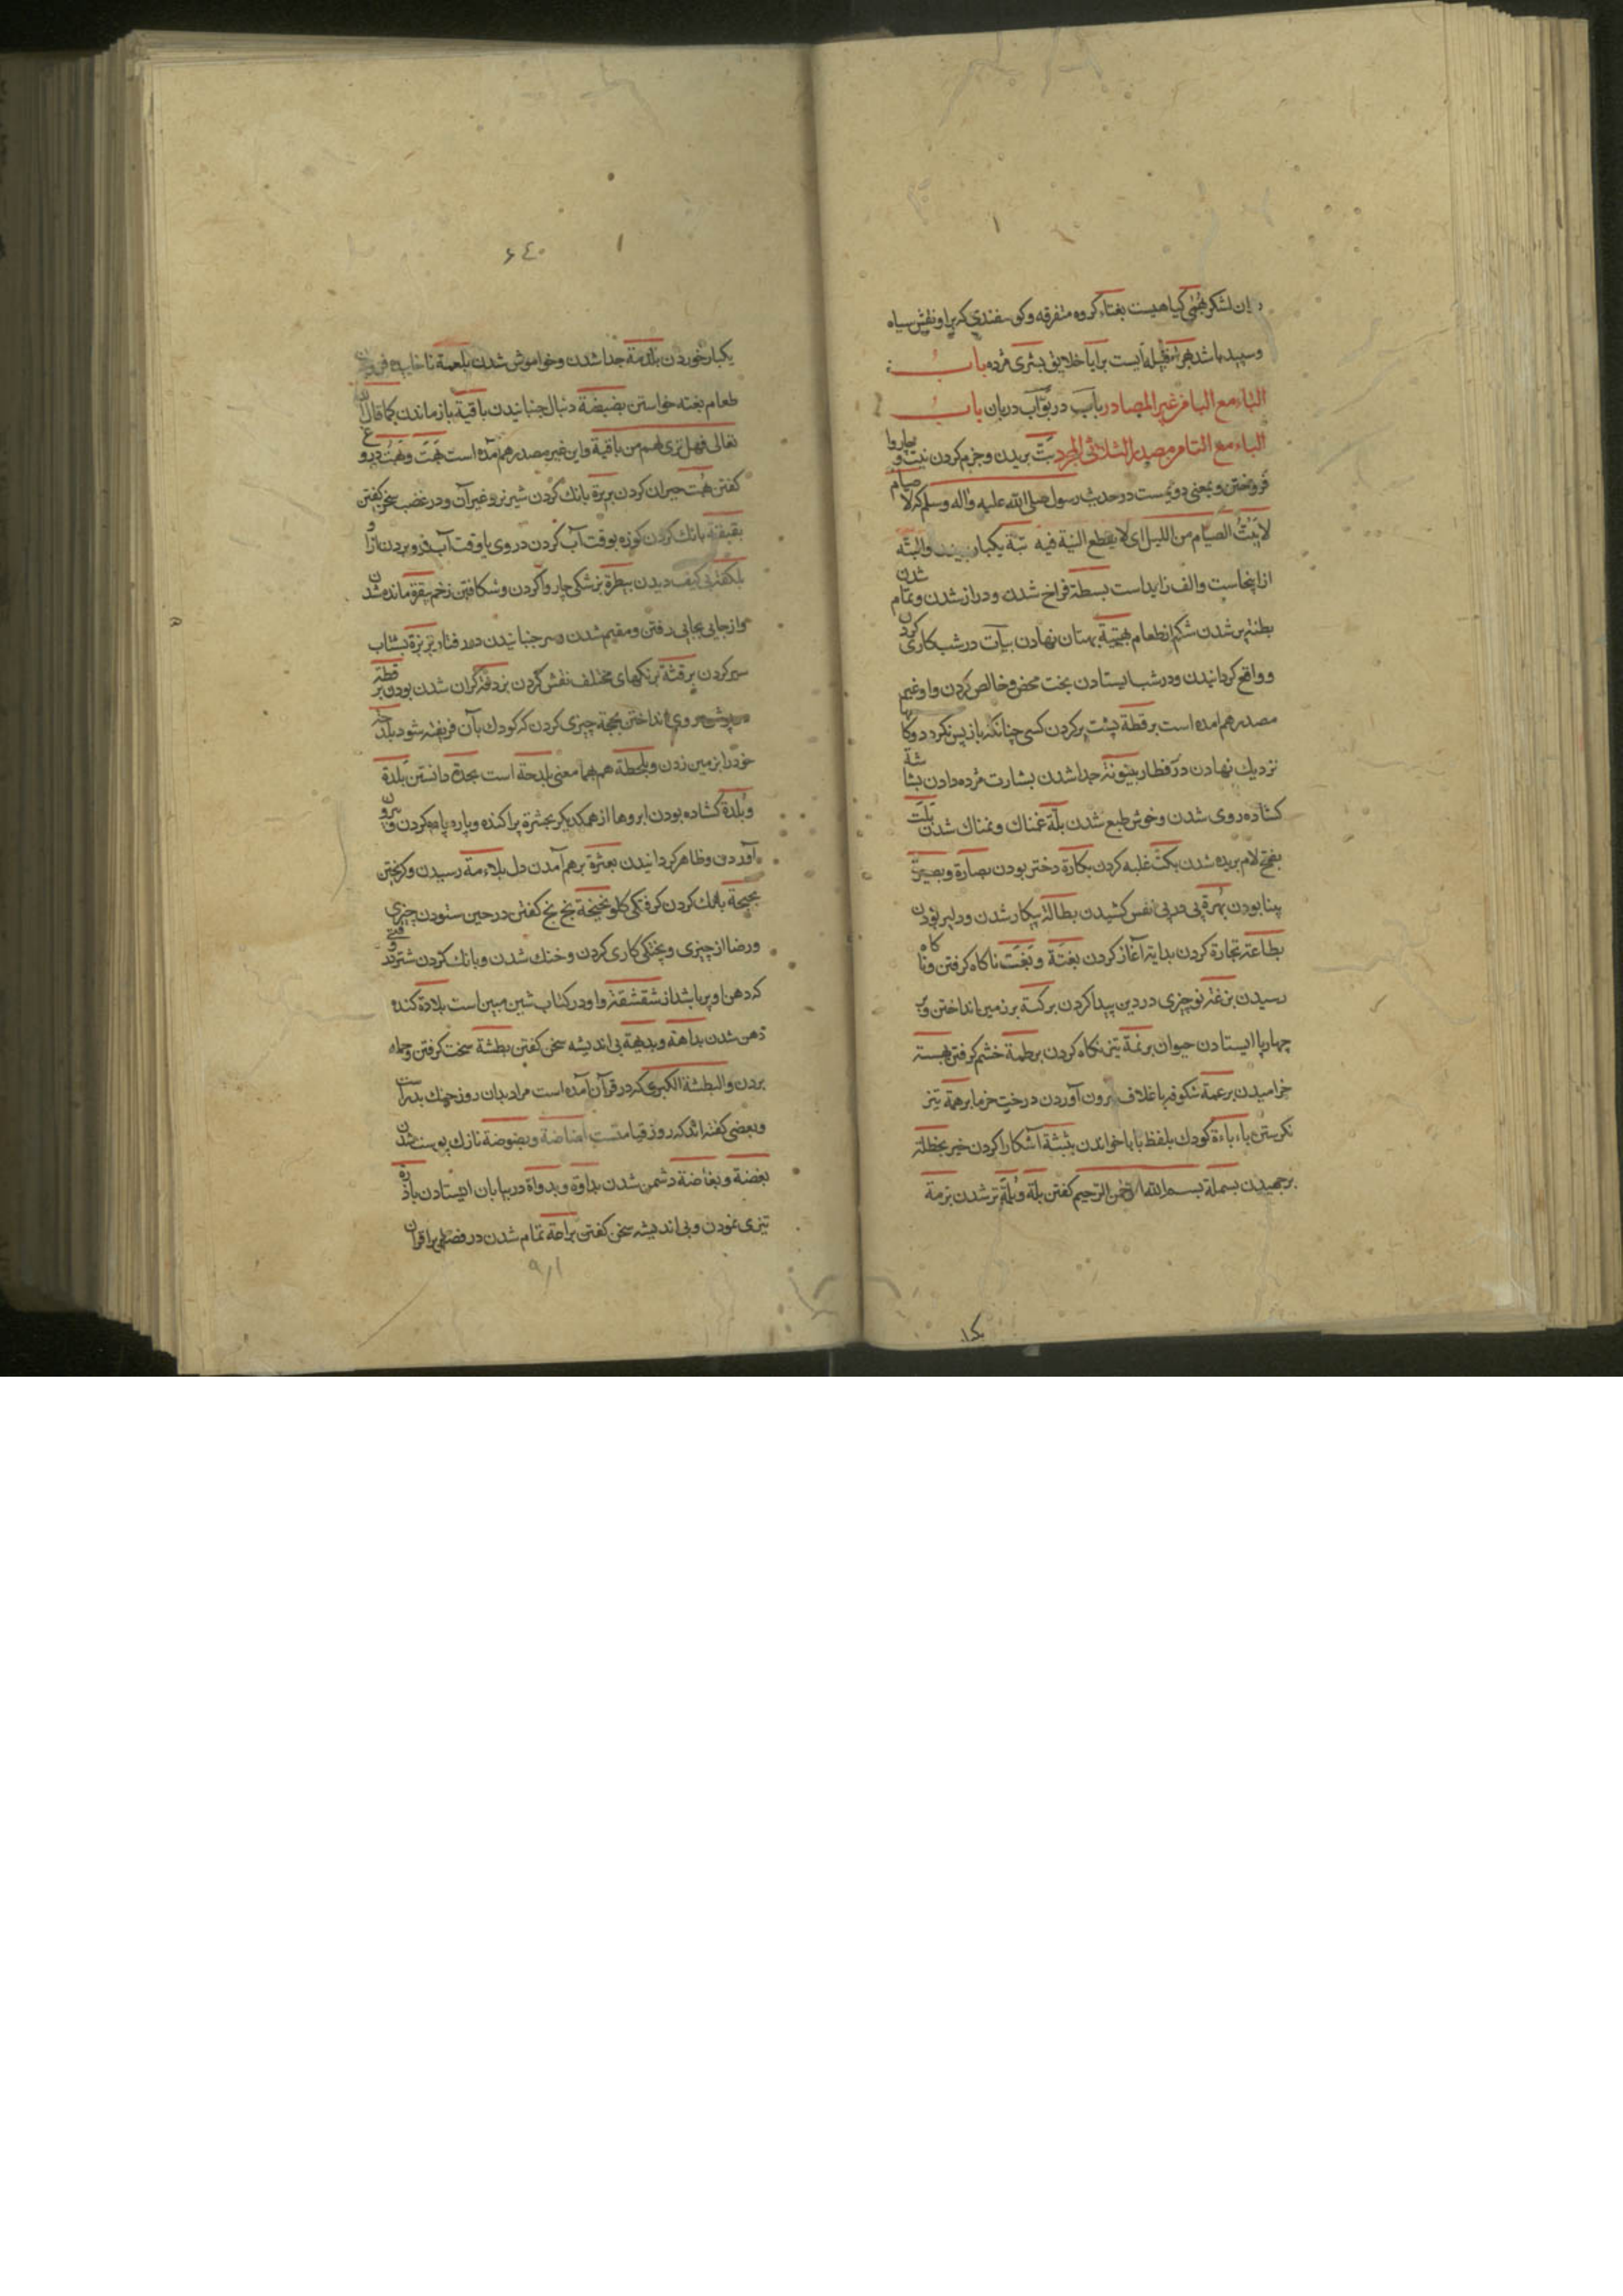 ان لشکر بهمی کیاهیست بغثاء کروه متفرقه وکوسفندی که براو نقش سیاه
وسپید باشد بهراء قبیله ایست برایا خلایق بشری مژده باب
الباء مع الباء من غیر المصادر باب در بوّاب دربان باب
الباء مع التاء من مصدر الثلاثی المجرد بتّ بریدن وجزم کردن نیت و
فروختن وبمعنی دویمست در حدیث رسول صلی الله علیه واله وسلم که لا صیام
لا یبتّ الصیام من اللیل ای لا یقطع النیة فیه بتة یکبار والبتّه
ازاینجاست والف زایداست بسطة فراخ شدن ودراز شدن وتمام شدن
بطنة پر شدن شکم از طعام بهیتة بهتان نهادن بیات در شب کاری کردن
وواقع کردانیدن ودر شب ایستادن بخت محض وخالص کردن واو غیر
مصدر هم امده است برقطة پشت بر کردن کسی چنانکه باز پس نکرد
نزدیك نهادن در رفتار بینونة جدا شدن بشارت مژده دادن بشاشة
کشاده روی شدن وخوش طبع شدن بلّة غمناك ونمناك شدن بلت
بفتح لام بریده شدن بکت غلبه کردن بکارة دختر بودن بصارة وبصیرة
بینا بودن بهرة پی در پی نفس کشیدن بطالة بیکار شدن ودلیر بودن
بضاعة تجارة کردن بدایة آغاز کردن بغتة وبغت ناکاه کرفتن وناکاه
رسیدن بدعة نو چیزی در دین پیدا کردن برکسة بر زمین انداختن وبر
چهارپا ایستادن حیوان برنمة تیز نکاه کردن برطمة خشم کرفتن بهسة
خرامیدن برعمة شکوفه باغلاف برون آوردن درخت خرما برهمة تیز
نکرستن باءباءة کودك بلفظ بابا خواندن بثبثة آشکارا کردن خبر بحظلة
برجهیدن بسملة بسم الله الرحمن الرحیم کفتن بلّة وبلّة تر شدن بزمة
٦٤٠
یکبار خوردن بلذمة جدا شدن وخواموش شدن بلعمة ناخاییده
طعام بغته خواستن بصبصة دنبال جنبانیدن باقیة باز ماندن کما قال
تعالی فهل تری لهم من باقیة واین غیر مصدر هم آمده است بهت وبهت دروغ
کفتن بهت حیران کردن بربرة بانك کردن شیر نر وغیر آن ودر غضب سخن کفتن
بقبقة بانك کردن کوزه بوقت آب کردن در وی یا وقت آب فرو بردن
بلکفة بی کیف دیدن بیطرة بزشکی چاروا کردن وشکافتن زخم بیقرة مانده شدن
واز جایی بجایی رفتن ومقیم شدن وسر جنبانیدن در رفتار بزبزة بشتاب
سیر کردن برقشة برنکهای مختلف نقش کردن
روی انداختن بجة چیزی کردن که کودك بآن فریفته شود بلدحة
خودرا بر زمین زدن وبلحطة هم بهمان معنی بلدحة است بجدة دانستن بلدة
وبلدة کشاده بودن ابروها از همدیکر بحثرة پراکنده وپاره پاره کردن وبیرون
آوردن وظاهر کردانیدن بعثرة برهم آمدن دل بلاءمة رسیدن وکریختن
بحبحة بانك کردن کرفتکی کلو بخبخة بخ بخ کفتن در حین ستودن چیزی
ورضا از چیزی وپختکی کاری کردن وخنك شدن وبانك کردن شتر وقتی
که دهن او پر باشد از شقشقة واو در کتاب شین مبین است بلادة کند
ذهن شدن بداهة وبدیهة بی اندیشه سخن کفتن بطشة سخت کرفتن وحمله
بردن والبطشة الکبری که در قرآن آمده است مراد بدان روز جنك بدر است
وبعضی کفته اند که روز قیامتست بضاضة وبضوضة نازك پوست شدن
بغضة وبغاضة دشمن شدن بداوة وبدواة در بیابان ایستادن بادرة
تیزی نمودن وبی اندیشه سخن کفتن براعة تمام شدن در فضل بر اقران